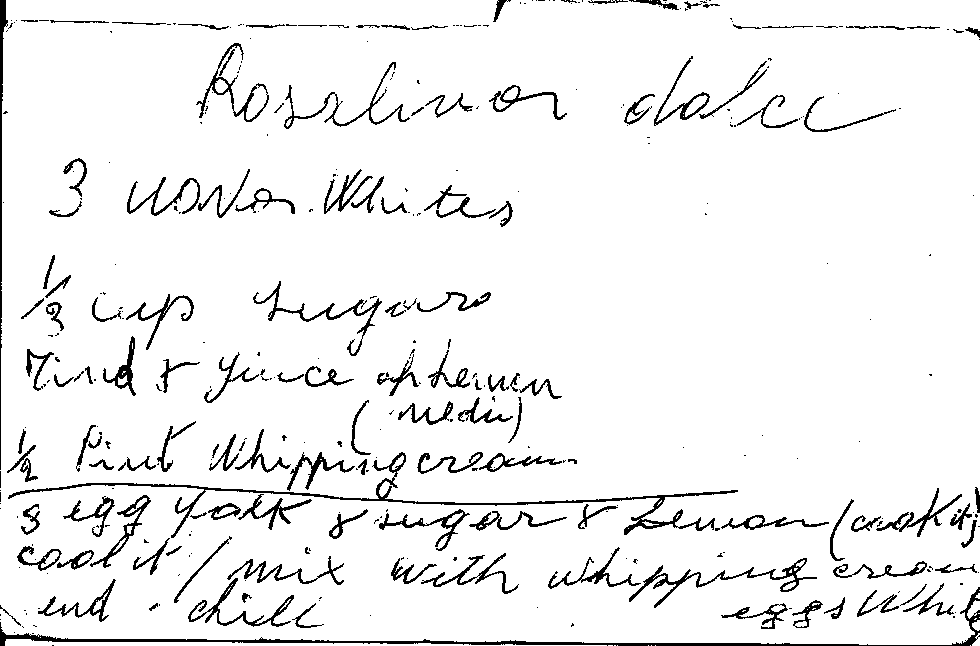 Roselinon dolce
3 uova Whites
1/3 cup sugar
rind & yuice of Lemon
(medio)
1/2 Pint Whippingcream
3 egg yolk & sugar & Lemon (cook it)
cool it / mix with whipping cream
end - chill eggs White